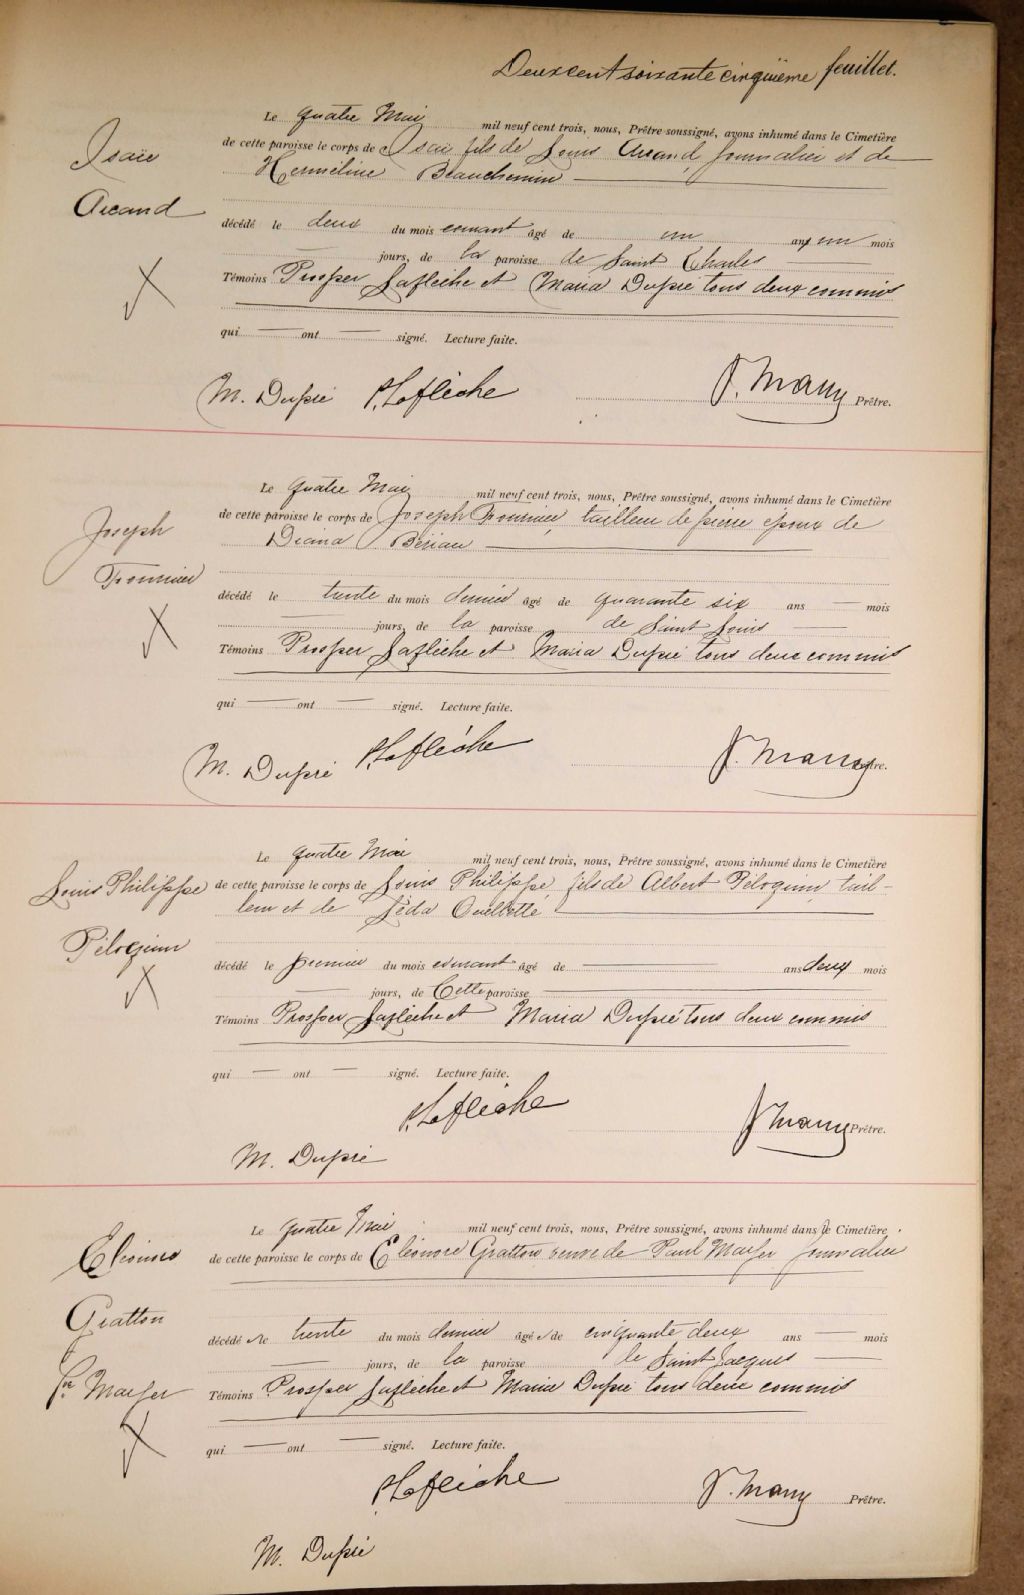 Deux cent soixante cinquième feuillet.
Le quatre Mai mil neuf cent trois, nous, Prêtre soussigné, avons inhumé dans le Cimetière
Isaïe
de cette paroisse le corps de Isaïe fils de Louis Arcand, journalier et de
Herméline Beauchemin
Arcand
décédé le deux du mois courant âgé de un ans un mois
jours, de la paroisse de Saint Charles
Témoins Prosper Laflèche et Maria Dupré tous deux commis
qui ont signé. Lecture faite.
M. Dupré P. Laflèche Prêtre.
Le quatre Mai mil neuf cent trois, nous, Prêtre soussigné, avons inhumé dans le Cimetière
Joseph
de cette paroisse le corps de Joseph Fournier, tailleur de pierre époux de
Diana Bériau
Fournier
décédé le trente du mois dernier âgé de quarante six ans mois
jours, de la paroisse de Saint Louis
Témoins Prosper Laflèche et Maria Dupré tous deux commis
qui ont signé. Lecture faite.
M. Dupré P. Laflèche
Le quatre Mai mil neuf cent trois, nous, Prêtre soussigné, avons inhumé dans le Cimetière
Louis Philippe
de cette paroisse le corps de Louis Philippe fils de Albert Péloquin, tail-
leur et de Léda Ouellette
Péloquin
décédé le premier du mois courant âgé de ans deux mois
jours, de Cette paroisse
Témoins Prosper Laflèche et Maria Dupré tous deux commis
qui ont signé. Lecture faite.
P. Laflèche Prêtre.
M. Dupré
Le quatre Mai mil neuf cent trois, nous, Prêtre soussigné, avons inhumé dans le Cimetière
Eléonore
de cette paroisse le corps de Eléonore Gratton veuve de Paul journalier
Gratton
décédée le trente du mois dernier âgée de cinquante deux ans mois
jours, de la paroisse de Saint Jacques
Témoins Prosper Laflèche et Maria Dupré tous deux commis
qui ont signé. Lecture faite.
P. Laflèche Prêtre.
M. Dupré